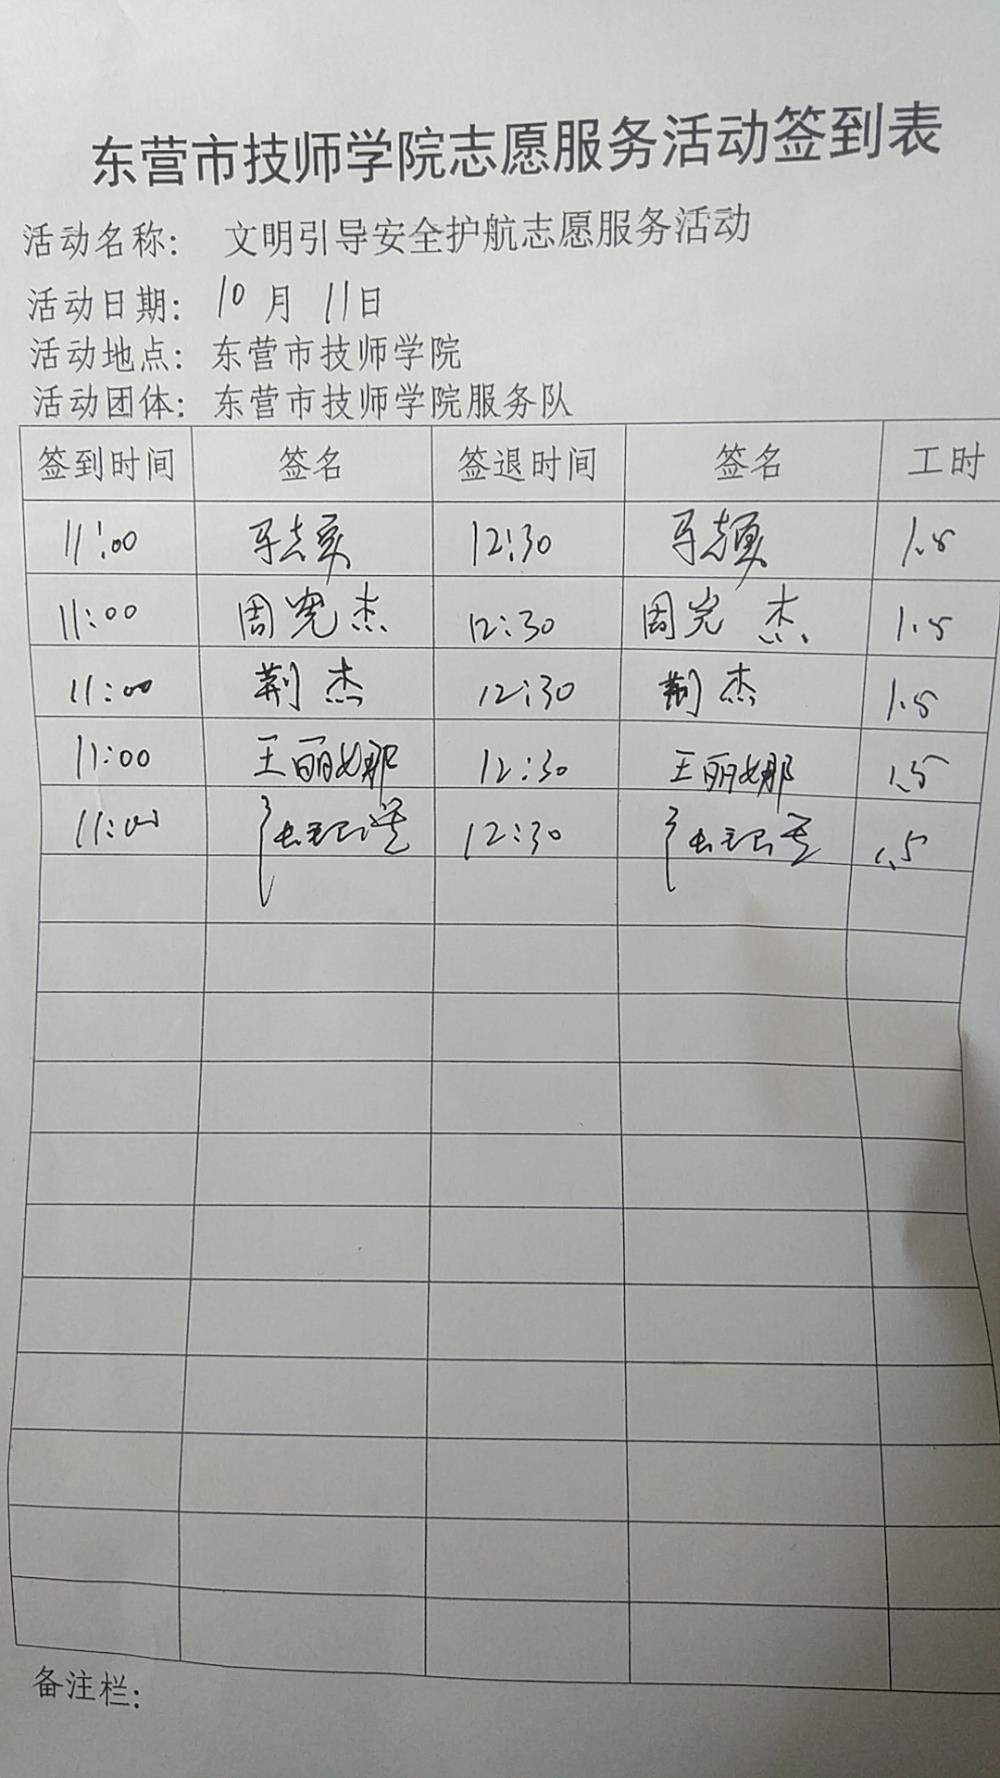 东营市技师学院志愿服务活动签到表
活动名称： 文明引导安全护航志愿服务活动
活动日期： 10 月 11日
活动地点：东营市技师学院
活动团体：东营市技师学院服务队
签到时间 签名 签退时间 签名 工时
11:00 12:30 1.5
11:00 周 杰 12:30 周 杰 1.5
11:00 荆杰 12:30 荆杰 1.5
11:00 王丽娜 12:30 王丽娜 1.5
11:00 张 12:30 张 1.5
备注栏：